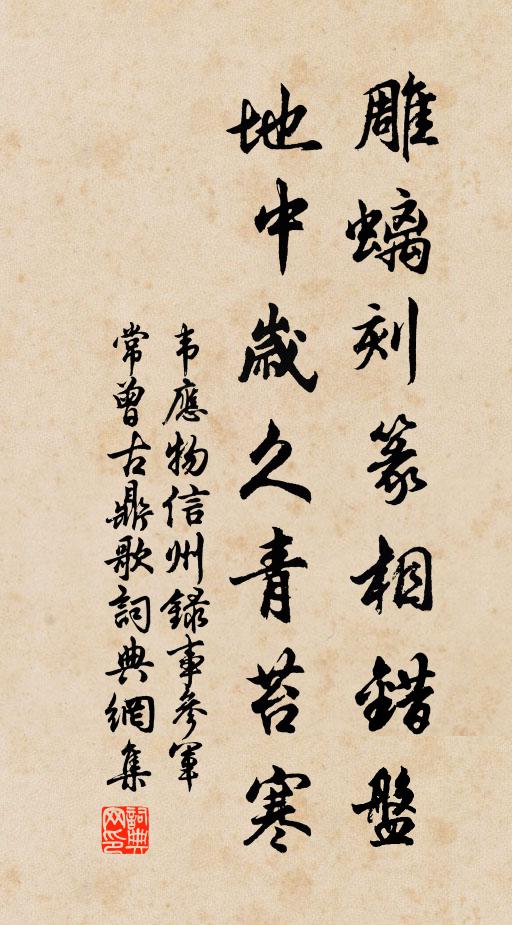 雕螭刻篆相錯盤
地中歲久青苔寒
韦應物信州録事參軍
常曾古鼎歌詞典網集
詞典网印